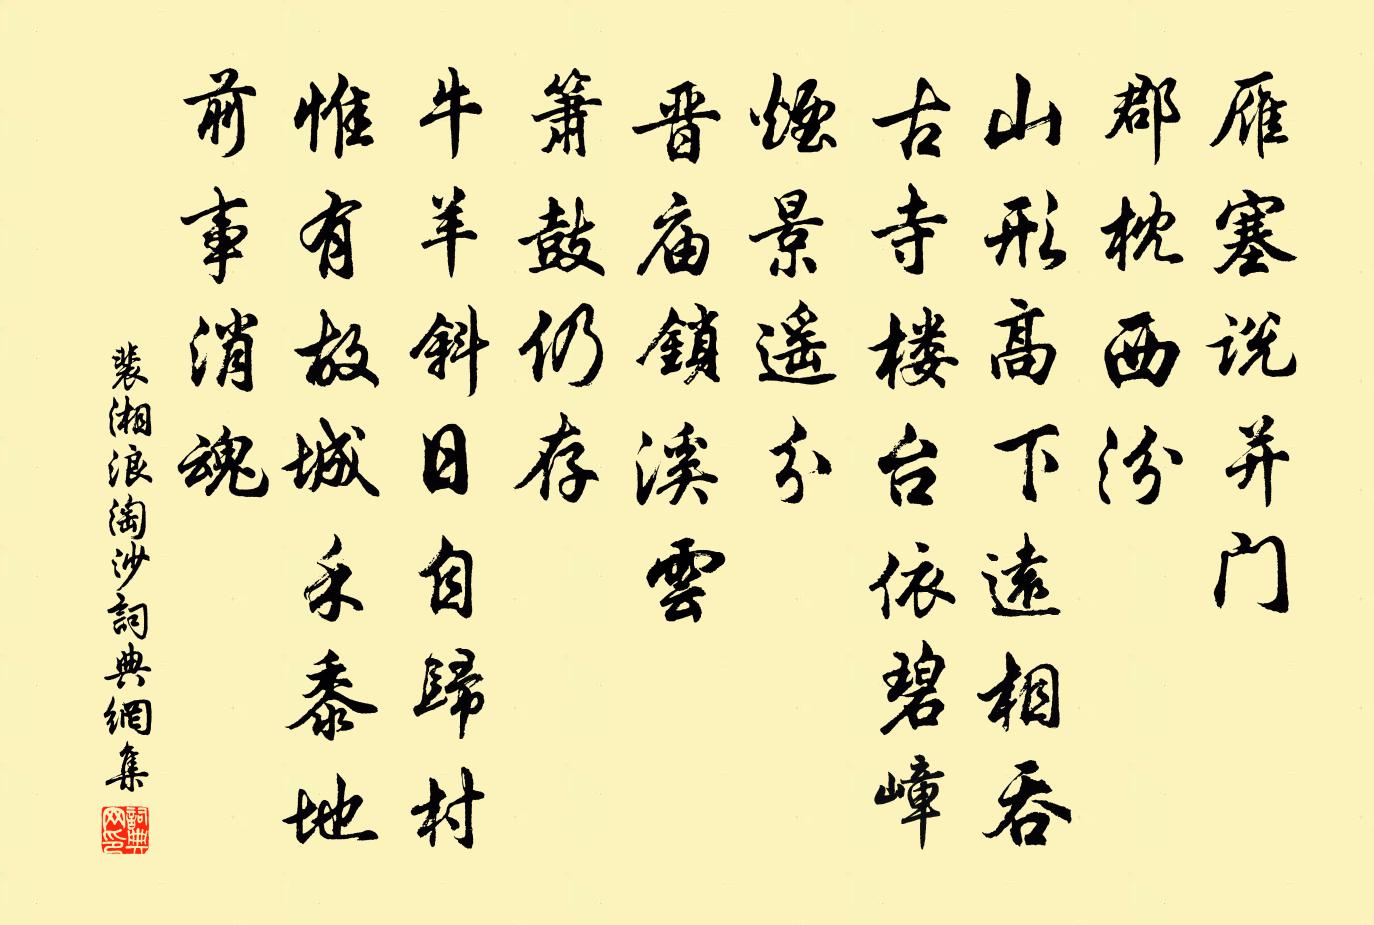 雁塞说并门
郡枕西汾
山形高下遠相吞
古寺楼台依碧嶂
煙景遥分
晋庙鎖溪雲
簫鼓仍存
牛羊斜日自歸村
惟有故城禾黍地
前事消魂
裴湘浪淘沙詞典網集
詞典
网印